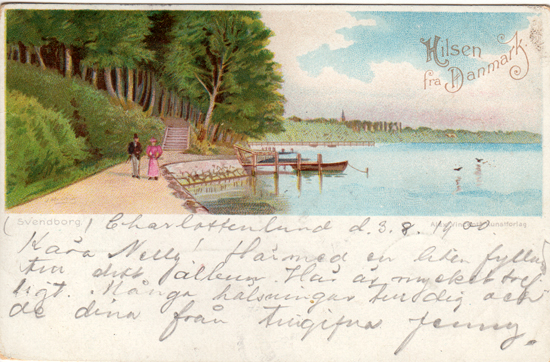 Hilsen
fra Danmark.
Svendborg
(                ) Charlottenlund d. 3. 8. 1900.
Kära Nelly! Härmed en liten fyllnad
till ditt album. Här är mycket tref-
ligt. Många hälsningar till dig och
de dina från tillgifna Jenny.